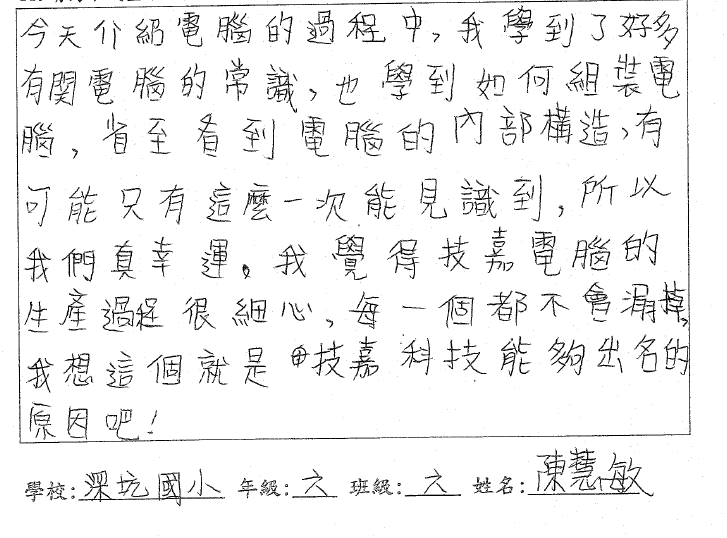 今天介紹電腦的過程中，我學到了好多
有関電腦的常識，也學到如何組裝電
腦，省至看到電腦的內部構造，有
可能只有這麼一次能見識到，所以
我們真幸運。我覺得技嘉電腦的
生產過程很細心，每一個都不會漏掉，
我想這個就是技嘉科技能夠出名的
原因吧！
學校：深坑國小 年級：六 班級：六 姓名：陳慧敏